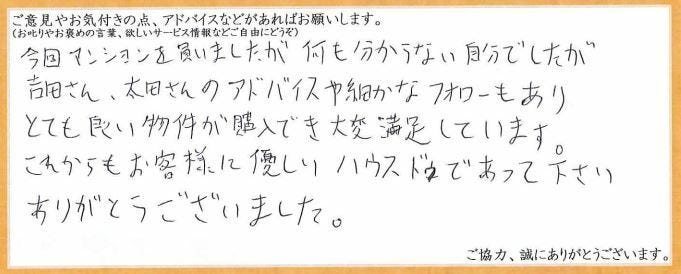 ご意見やお気付きの点、アドバイスなどがあればお願いします。
(お叱りやお褒めの言葉、欲しいサービス情報などご自由にどうぞ)
今回マンションを買いましたが 何も分からない自分でしたが
吉田さん、太田さんのアドバイスや細かなフォローもあり
とても良い物件が購入でき大変満足しています。
これからもお客様に優しいハウスドゥであって下さい
ありがとうございました。
ご協力、誠にありがとうございます。